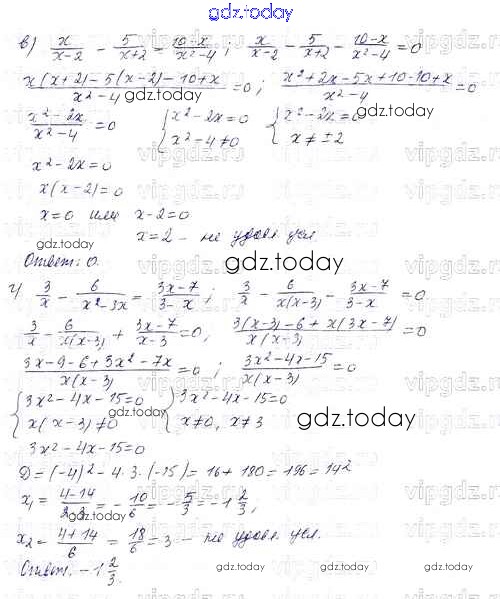 gdz.today
в) x/(x-2) - 5/(x+2) = (10-x)/(x²-4); x/(x-2) - 5/(x+2) - (10-x)/(x²-4) = 0
(x(x+2)-5(x-2)-10+x)/(x²-4) = 0; (x²+2x-5x+10-10+x)/(x²-4) = 0
gdz.today
(x²-2x)/(x²-4) = 0 {x²-2x=0 x²-4≠0 {x²-2x=0 x≠±2
x²-2x=0
x(x-2)=0
x=0 или x-2=0
gdz.today
x=2 - не удовл. усл.
Ответ: 0.
gdz.today
г) 3/x - 6/(x²-3x) = (3x-7)/(3-x); 3/x - 6/(x(x-3)) - (3x-7)/(3-x) = 0
3/x - 6/(x(x-3)) + (3x-7)/(x-3) = 0, (3(x-3)-6+x(3x-7))/(x(x-3)) = 0
(3x-9-6+3x²-7x)/(x(x-3)) = 0; (3x²-4x-15)/(x(x-3)) = 0
{3x²-4x-15=0 x(x-3)≠0 {3x²-4x-15=0 x≠0, x≠3
gdz.today
gdz.today
3x²-4x-15=0
D=(-4)²-4·3·(-15)=16+180=196=14²
x₁=(4-14)/(2·3)=-10/6=-5/3=-1 2/3,
x₂=(4+14)/6=18/6=3 - не удовл. усл.
gdz.today
Ответ: -1 2/3.
gdz.today
gdz.today